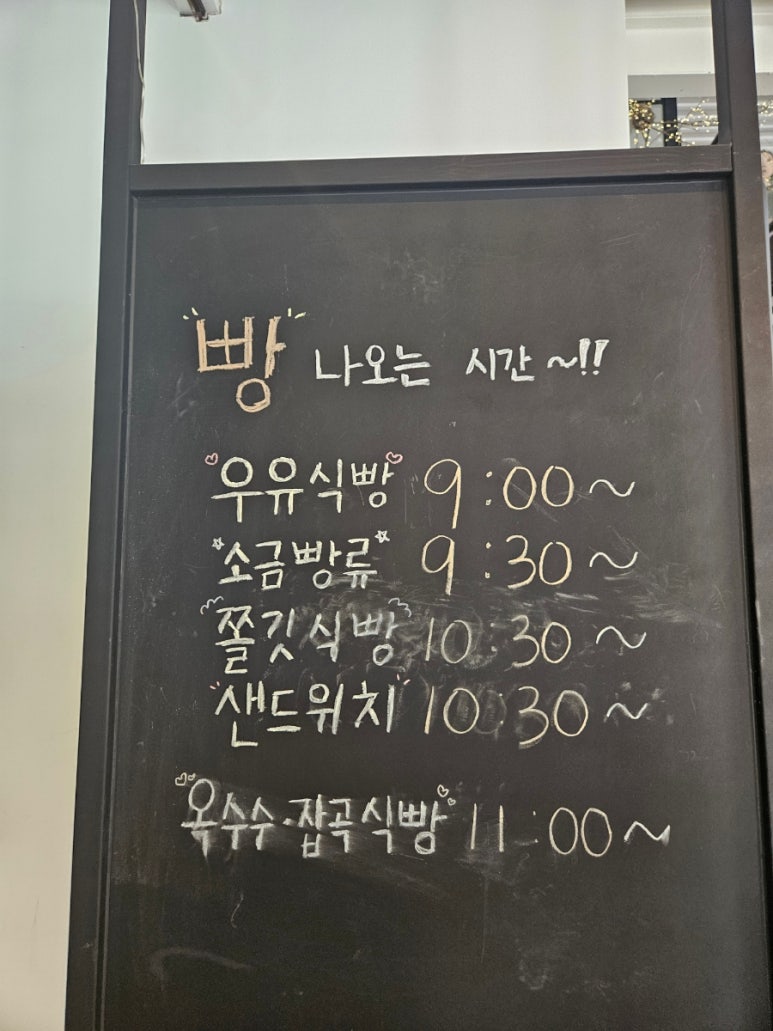 빵 나오는 시간~!!
우유식빵 9:00~
소금빵류 9:30~
쫄깃식빵 10:30~
샌드위치 10:30~
옥수수·잡곡식빵 11:00~